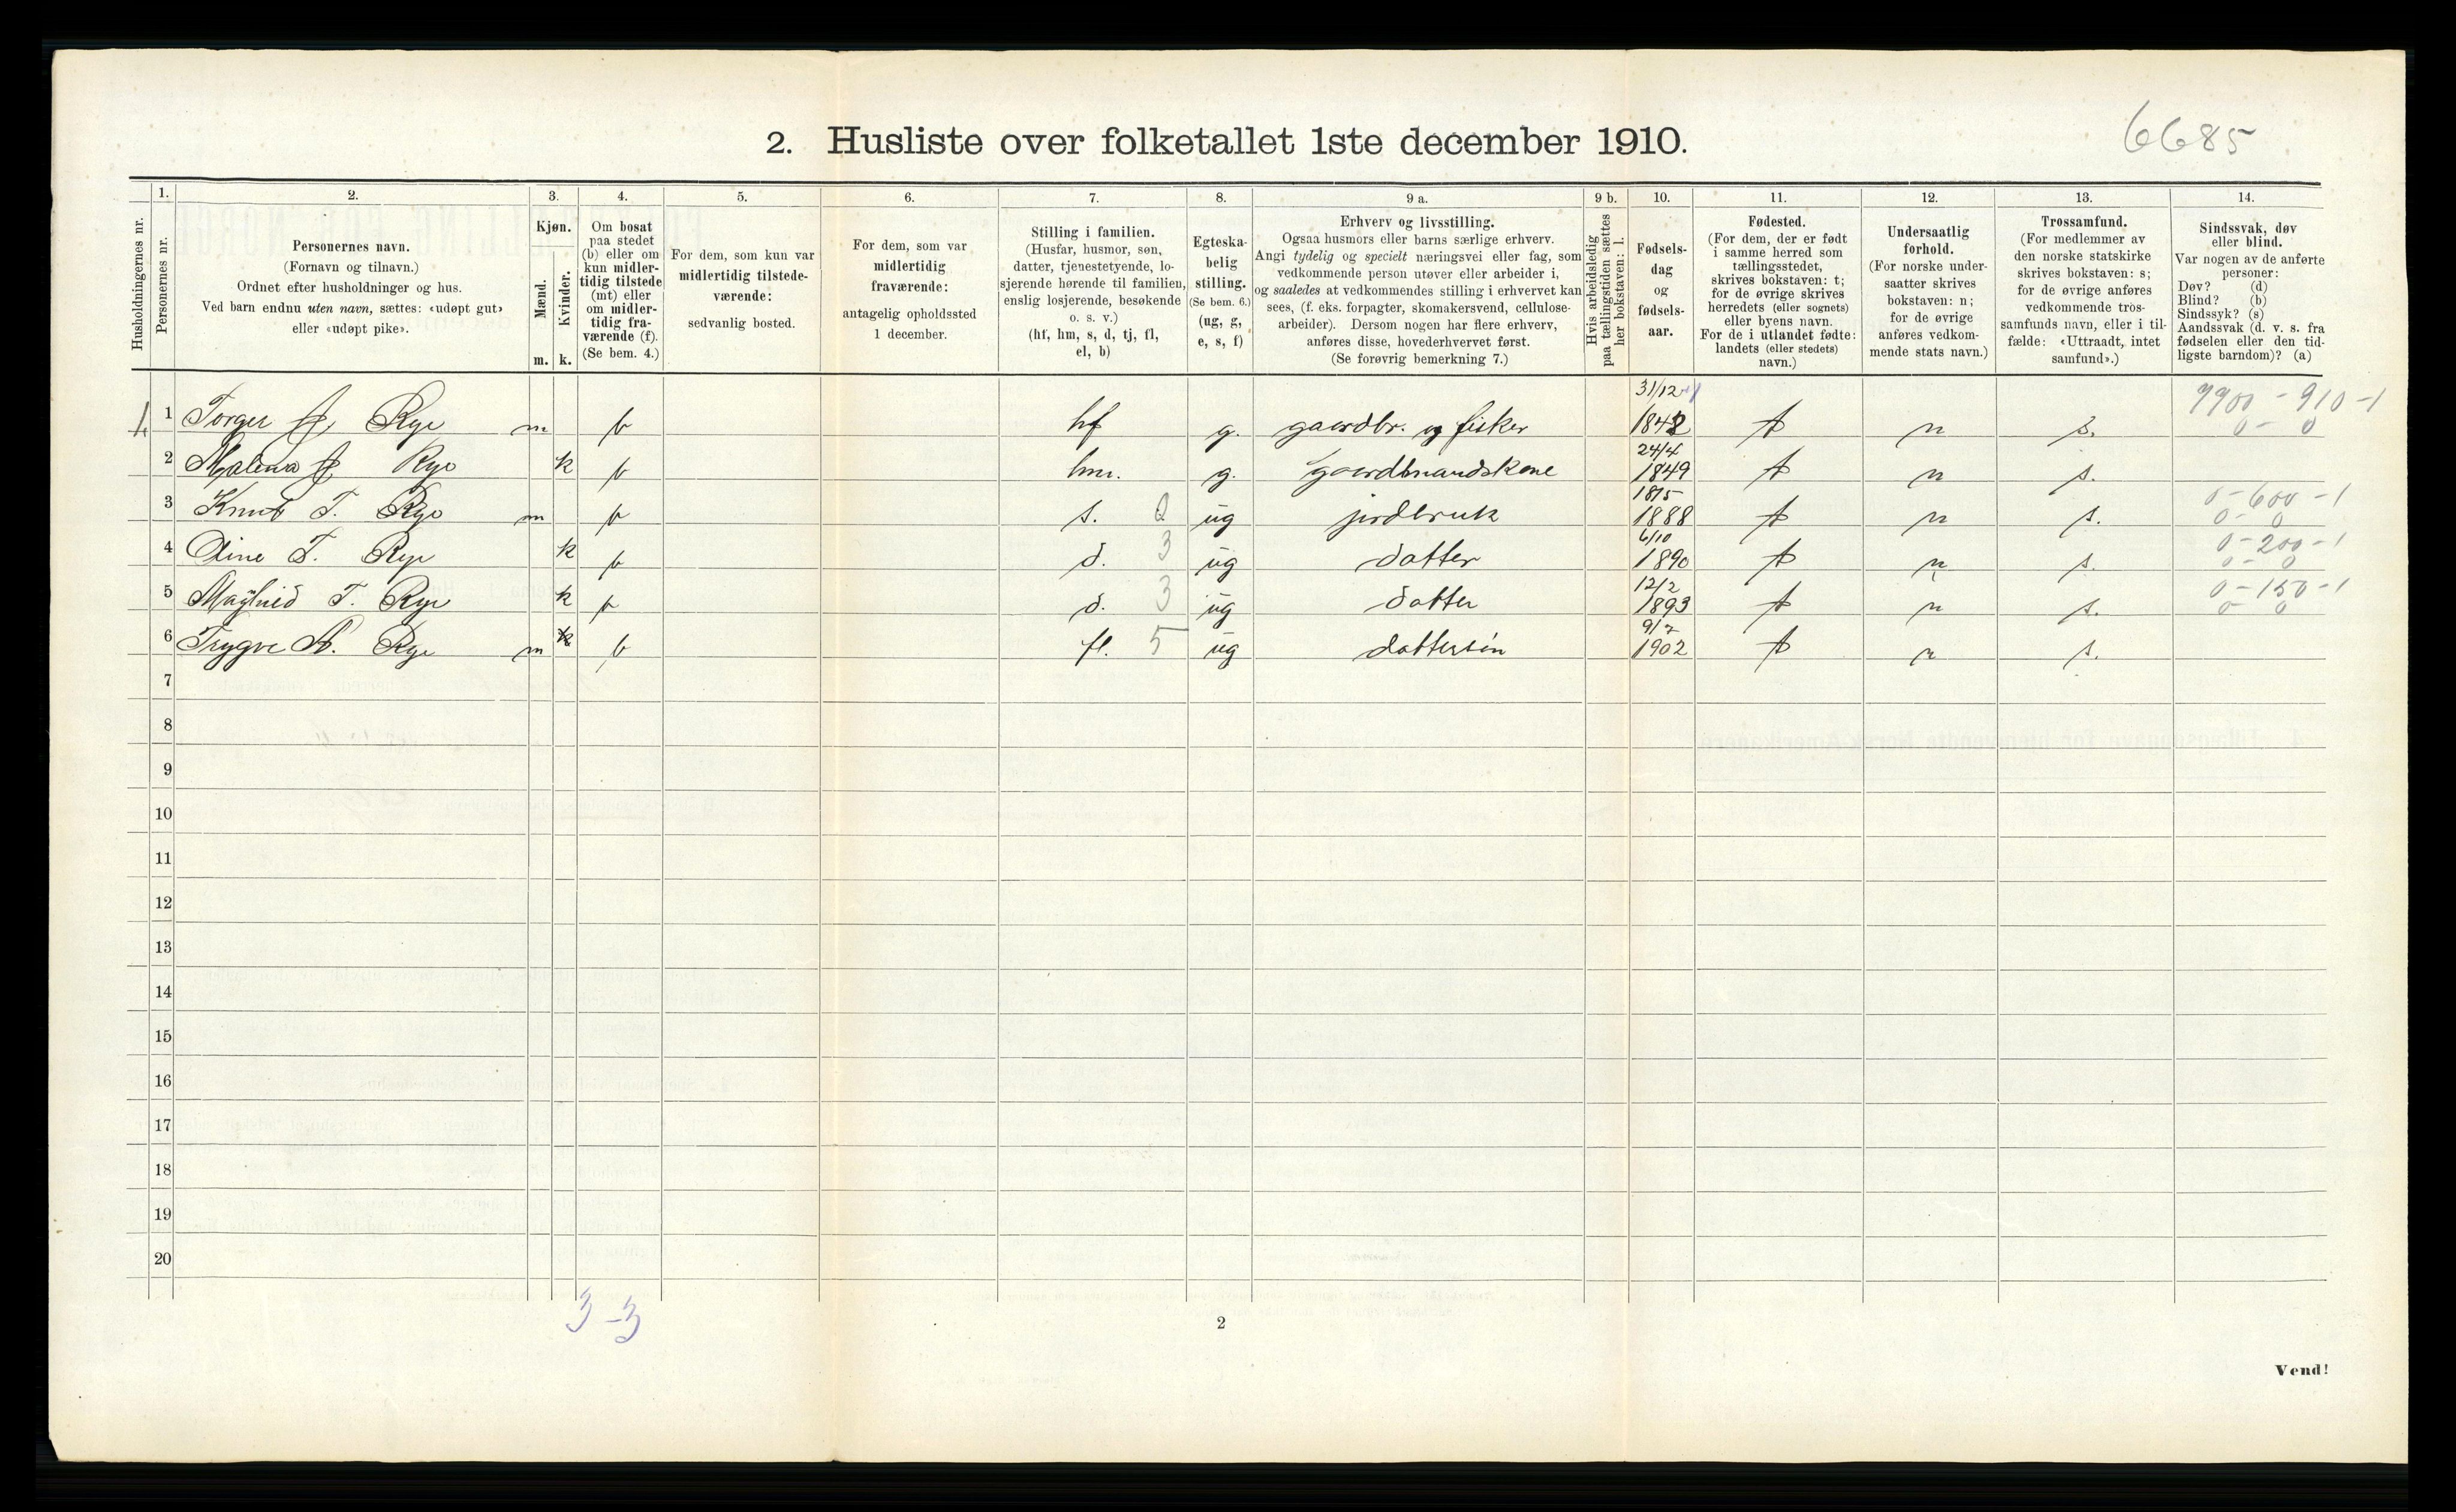 6685
2. Husliste over folketallet 1ste december 1910.
Husholdningernes nr.
1. Personernes nr.
2. Personernes navn. (Fornavn og tilnavn.) Ordnet efter husholdninger og hus. Ved barn endnu uten navn, sættes: «udøpt gut» eller «udøpt pike».
3. Kjøn. Mænd. m. Kvinder. k.
4. Om bosat paa stedet (b) eller om kun midlertidig tilstede (mt) eller om midlertidig fraværende (f). (Se bem. 4.)
5. For dem, som kun var midlertidig tilstedeværende: sedvanlig bosted.
6. For dem, som var midlertidig fraværende: antagelig opholdssted 1 december.
7. Stilling i familien. (Husfar, husmor, søn, datter, tjenestetyende, losjerende hørende til familien, enslig losjerende, besøkende o. s. v.) (hf, hm, s, d, tj, fl, el, b)
8. Egteskabelig stilling. (Se bem. 6.) (ug, g, e, s, f)
9 a. Erhverv og livsstilling. Ogsaa husmors eller barns særlige erhverv. Angi tydelig og specielt næringsvei eller fag, som vedkommende person utøver eller arbeider i, og saaledes at vedkommendes stilling i erhvervet kan sees, (f. eks. forpagter, skomakersvend, cellulosearbeider). Dersom nogen har flere erhverv, anføres disse, hovederhvervet først. (Se forøvrig bemerkning 7.)
9 b. Hvis arbeidsledig paa tællingstiden sættes her bokstaven: l.
10. Fødselsdag og fødselsaar.
11. Fødested. (For dem, der er født i samme herred som tællingsstedet, skrives bokstaven: t; for de øvrige skrives herredets (eller sognets) eller byens navn. For de i utlandet fødte: landets (eller stedets) navn.)
12. Undersaatlig forhold. (For norske undersaatter skrives bokstaven: n; for de øvrige anføres vedkommende stats navn.)
13. Trossamfund. (For medlemmer av den norske statskirke skrives bokstaven: s; for de øvrige anføres vedkommende trossamfunds navn, eller i tilfælde: «Uttraadt, intet samfund».)
14. Sindssvak, døv eller blind. Var nogen av de anførte personer: Døv? (d) Blind? (b) Sindssyk? (s) Aandssvak (d. v. s. fra fødselen eller den tidligste barndom)? (a)
1 Torger Rye m b hf g. gaardbr. og fisker 31/12 1842 t n s. 7900 - 910 - 1 0 - 0
2 Malena Rye k b hm. g. gaardbmandskone 24/4 1849 t n s.
3 Knut T. Rye m b s. 2 ug jordbruk 18/5 1888 t n s. 0 - 600 - 1 0 - 0
4 Oline T. Rye k b d. 3 ug datter 6/10 1890 t n s. 0 - 200 - 1 0 - 0
5 Magnhild T. Rye k b d. 3 ug datter 12/2 1893 t n s. 0 - 150 - 1 0 - 0
6 Trygve A. Rye m k b fl. 5 ug dattersøn 9/7 1902 t n s.
7
8
9
10
11
12
13
14
15
16
17
18
19
20
3 - 3
2
Vend!